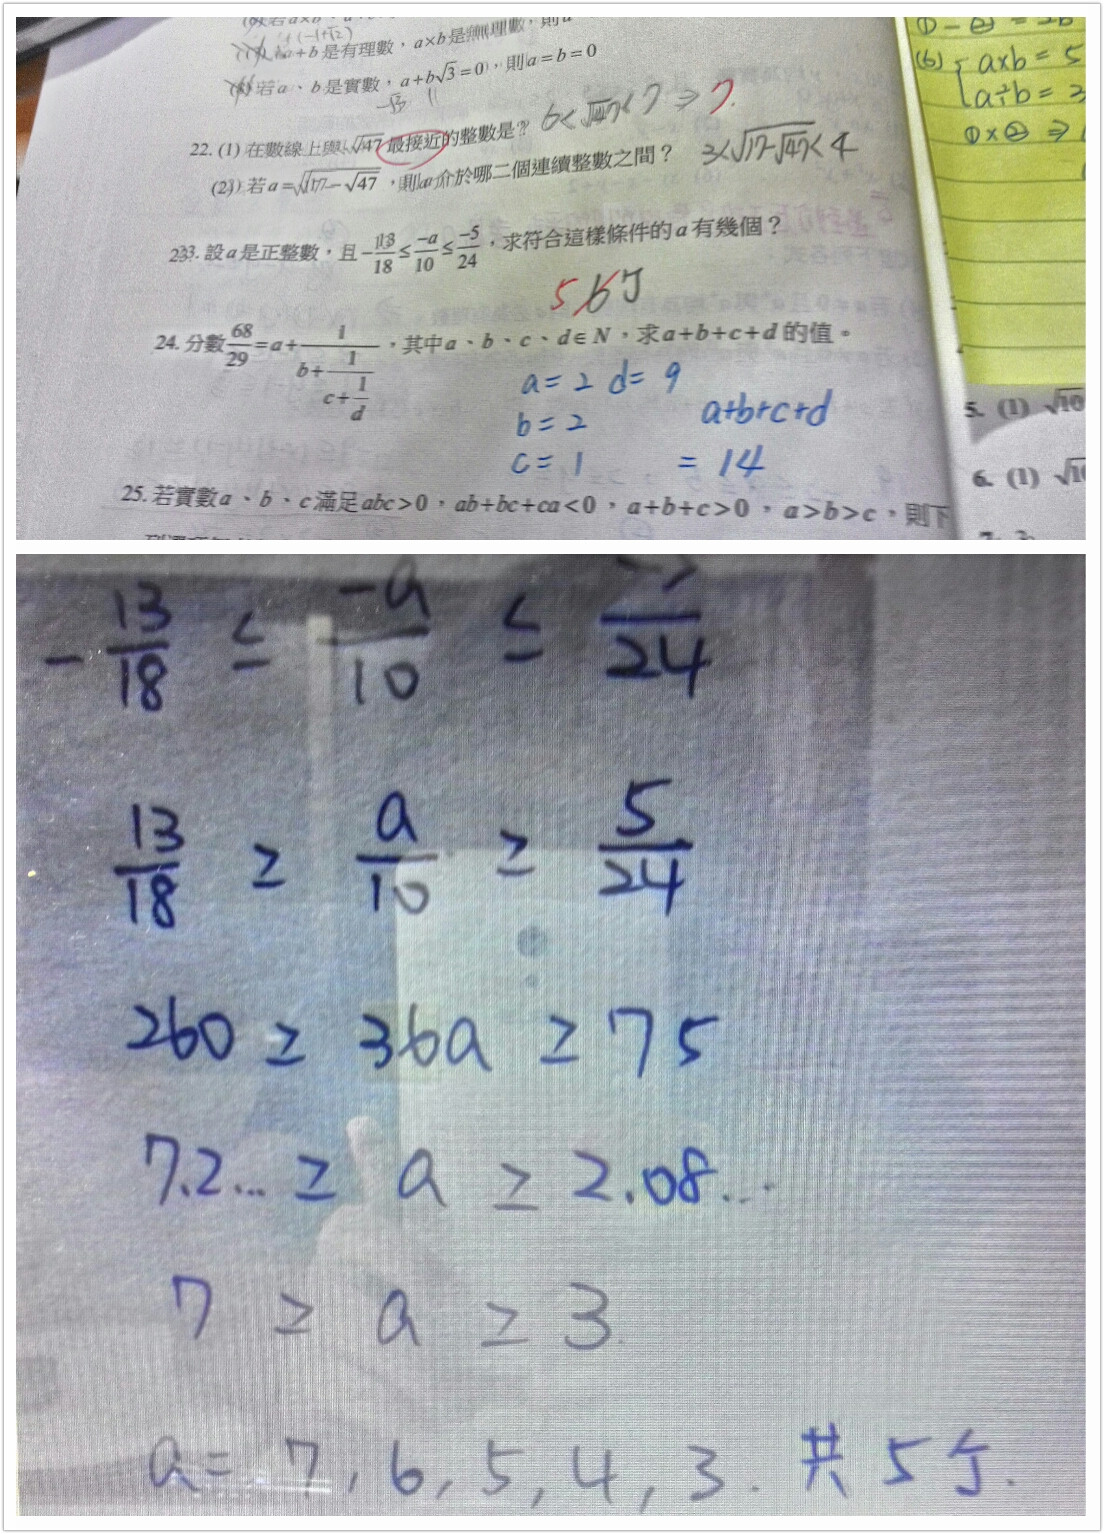 a+b是有理數，a×b是無理數，則a
(8) 若a、b是實數，a+b√3=0，則a=b=0
22. (1) 在數線上與√47最接近的整數是？ 6<√47<7 ⇒ 7.
(2) 若a=√(17-√47)，則a介於哪二個連續整數之間？ 3<√(17-√47)<4
23. 設a是正整數，且-13/18≤-a/10≤-5/24，求符合這樣條件的a有幾個？
5 6个
24. 分數68/29=a+1/(b+1/(c+1/d))，其中a、b、c、d∈N，求a+b+c+d的值。
a=2 d=9
b=2 a+b+c+d
c=1 =14
25. 若實數a、b、c滿足abc>0，ab+bc+ca<0，a+b+c>0，a>b>c，則下
①-②=
(6) { a×b=5
a÷b=
①×②⇒
5. (1) √10
6. (1)
-13/18 ≤ -a/10 ≤ /24
13/18 ≥ a/10 ≥ 5/24
260 ≥ 36a ≥ 75
7.2... ≥ a ≥ 2.08...
7 ≥ a ≥ 3
a=7,6,5,4,3. 共5个.